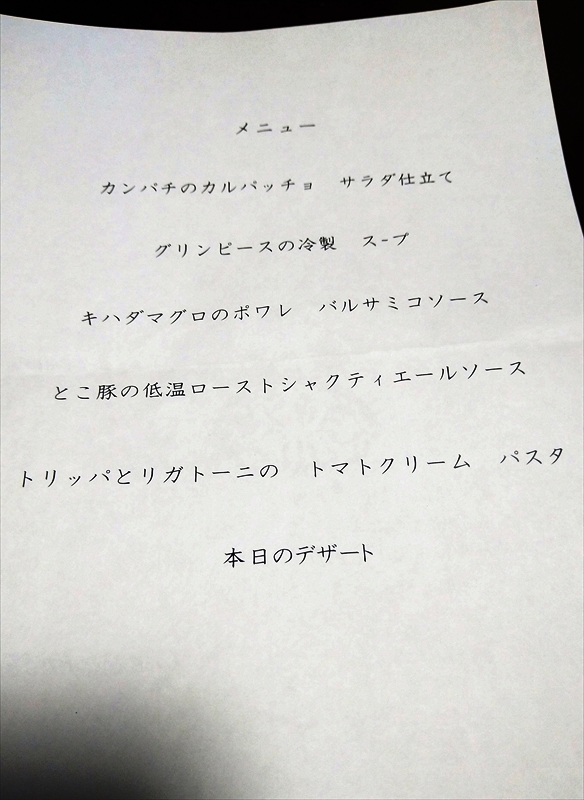 メニュー
カンパチのカルパッチョ　サラダ仕立て
グリンピースの冷製　スープ
キハダマグロのポワレ　バルサミコソース
とこ豚の低温ローストシャクティエールソース
トリッパとリガトーニの　トマトクリーム　パスタ
本日のデザート